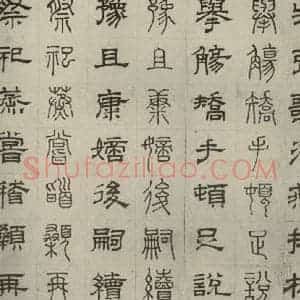 舉觴矯手頓足說
舉觴矯手頓足說
豫且康嫡後嗣續
豫且康嫡後嗣續
祭祀蒸嘗稽顙再
祭祀蒸嘗稽顙再
Shufaziliao.com